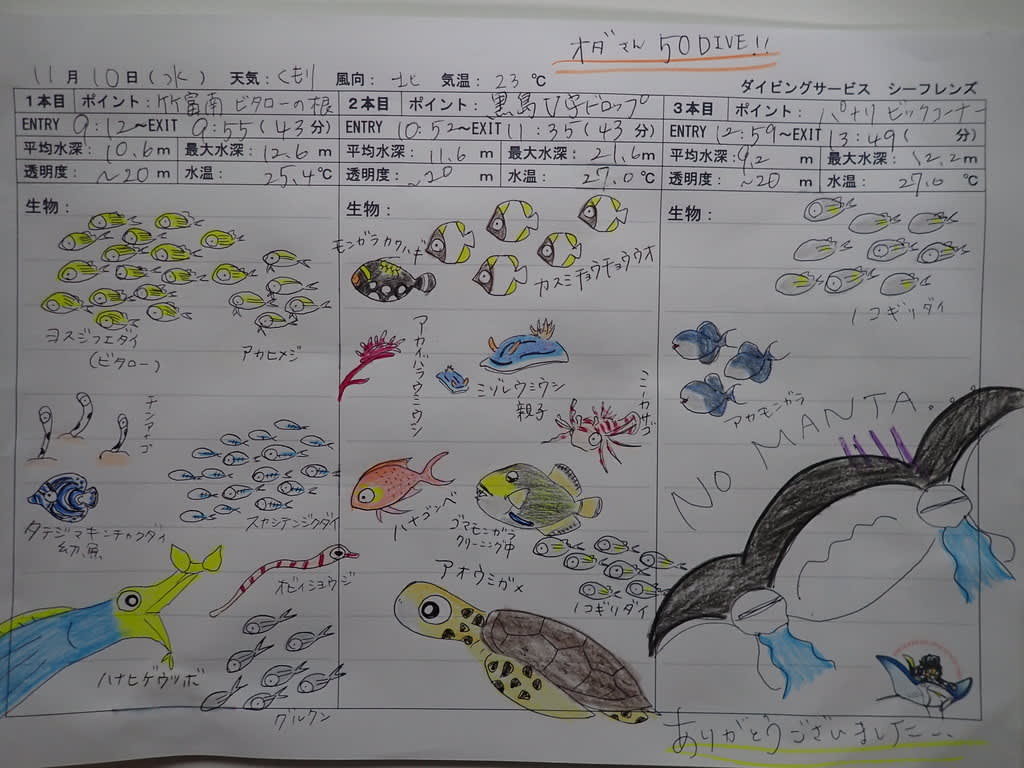 オダさん 50DIVE!!
11月10日(水) 天気:くもり 風向:北 気温:23℃
ダイビングサービス シーフレンズ
1本目 ポイント:竹富南 ビタローの根
ENTRY 9:12~EXIT 9:55(43分)
平均水深:10.6m 最大水深:12.6m
透明度:~20m 水温:25.4℃
生物:
ヨスジフエダイ
(ビタロー)
アカヒメジ
チンアナゴ
タテジマキンチャクダイ
幼魚
スカシテンジクダイ
オビイショウジ
ハナヒゲウツボ
グルクン
2本目 ポイント:黒島V字ドロップ
ENTRY 10:52~EXIT 11:35(43分)
平均水深:11.6m 最大水深:21.6m
透明度:~20m 水温:27.0℃
生物:
モンガラカワハギ
カスミチョウチョウウオ
アーカイバラウミウシ
ミゾレウミウシ
親子
ミノカサゴ
ハナゴンベ
ゴマモンガラ
クリーニング中
ノコギリダイ
アオウミガメ
3本目 ポイント:パナリ ビックコーナー
ENTRY 12:59~EXIT 13:49( 分)
平均水深:9.2m 最大水深:12.2m
透明度:~20m 水温:27.0℃
生物:
ノコギリダイ
アカモンガラ
NO MANTA..
ありがとうございました...